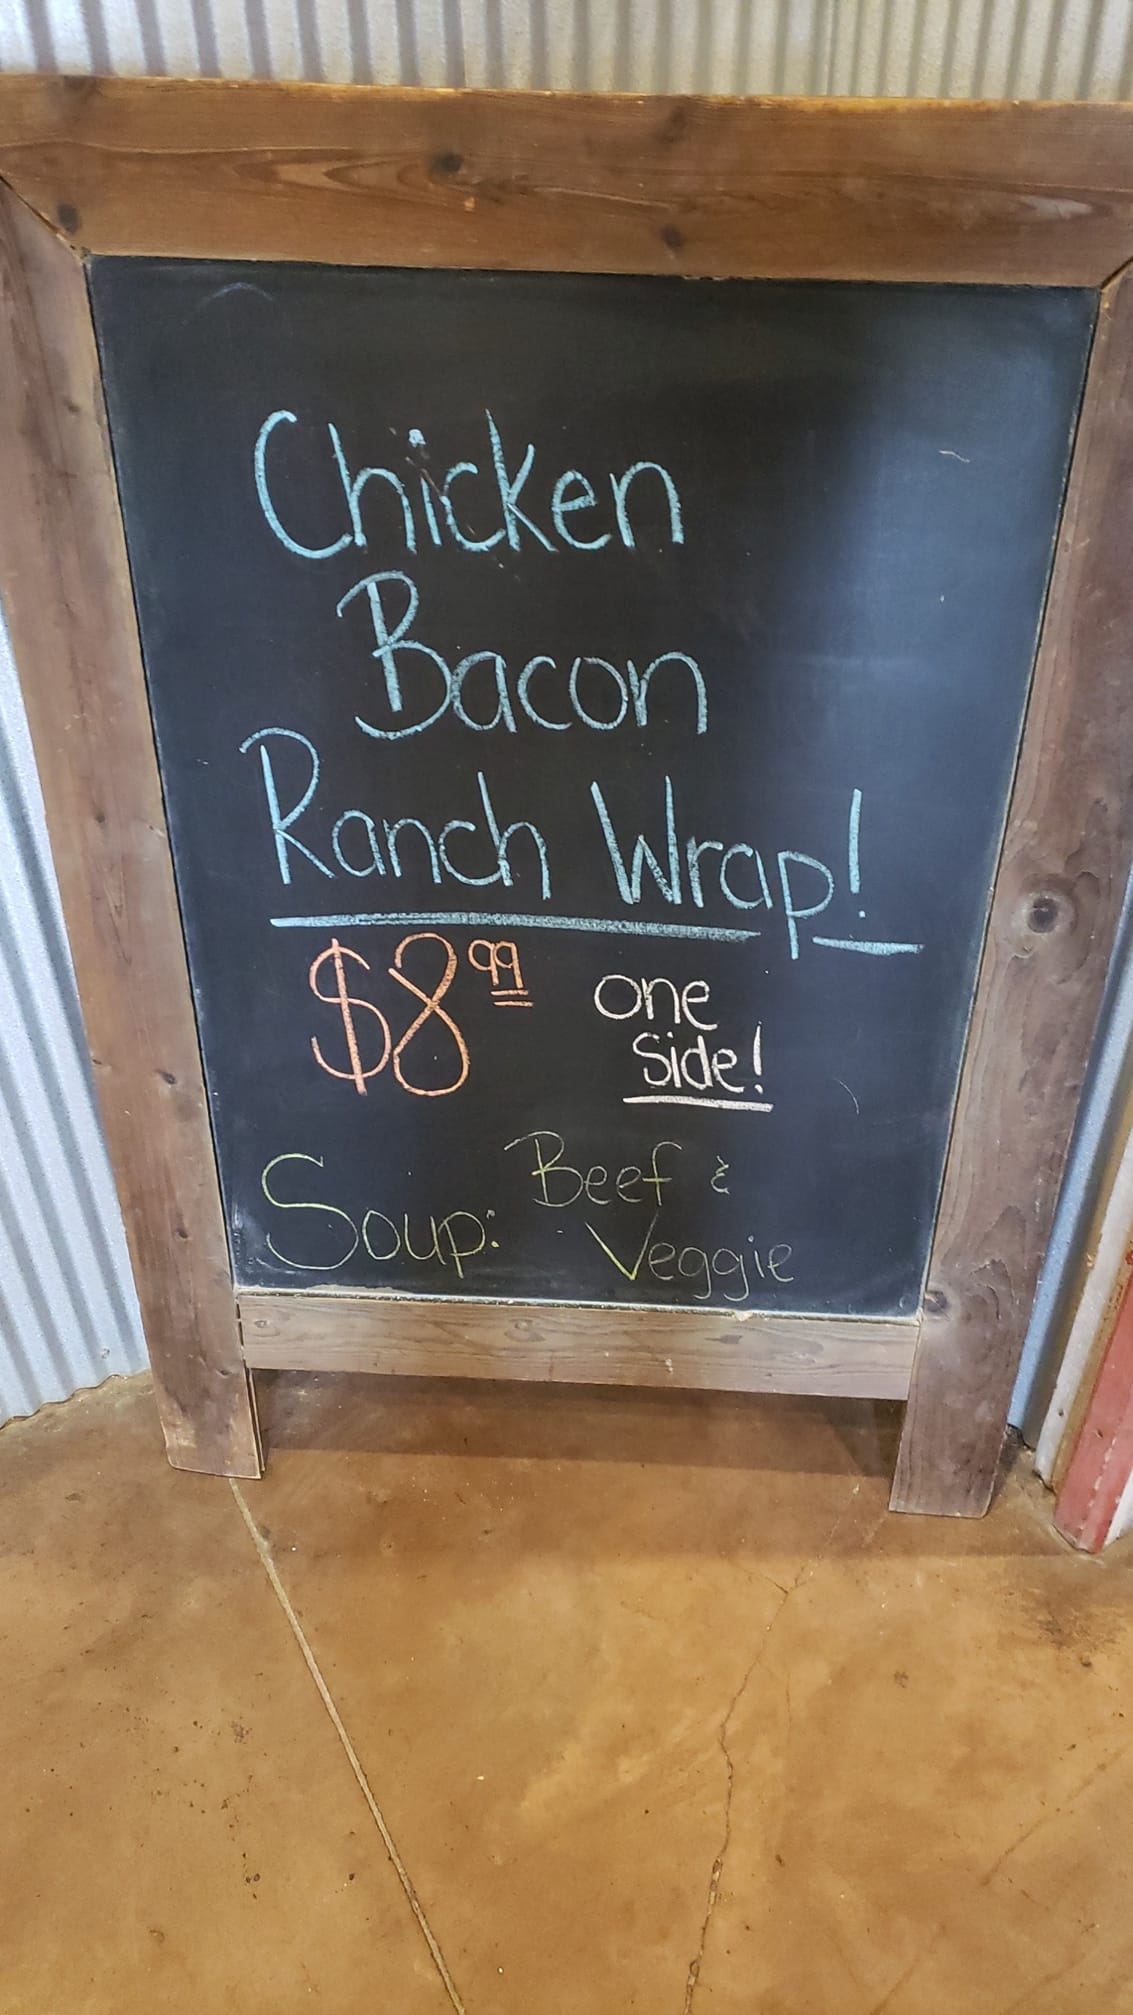 Chicken
Bacon
Ranch Wrap!
$8.99 one
side!
Soup: Beef &
Veggie